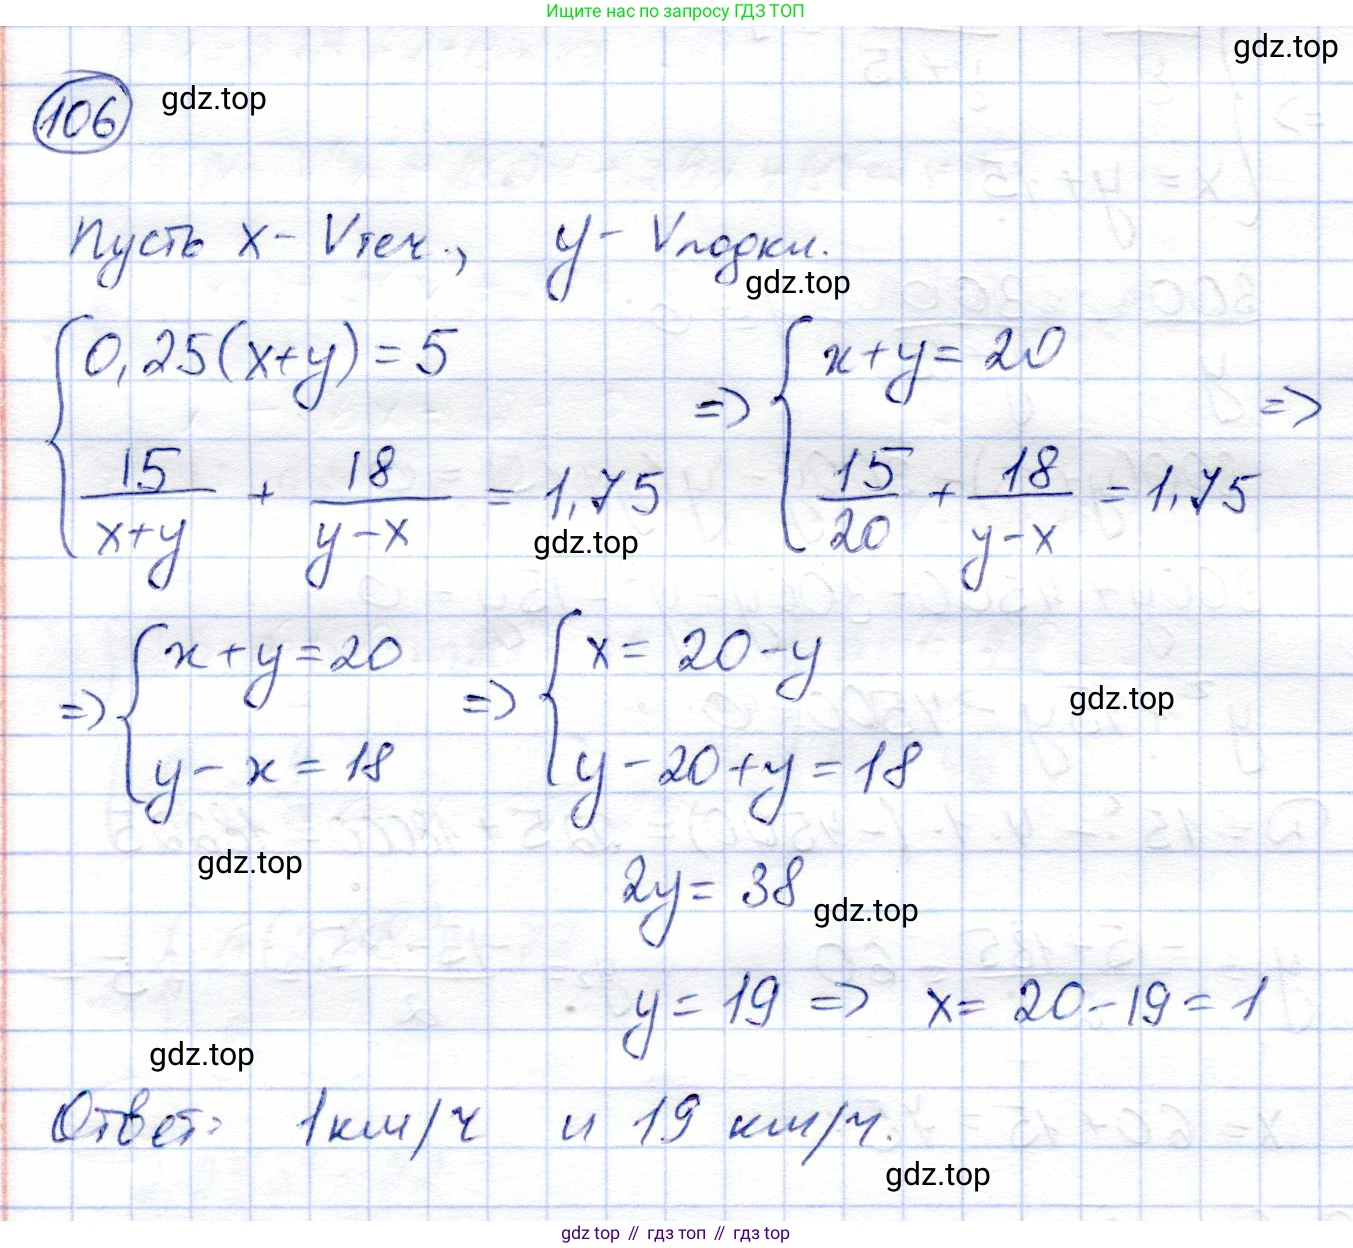 Ищите нас по запросу ГДЗ ТОП
gdz.top
106 gdz.top
Пусть x - Vтеч., y - Vлодки.
gdz.top
0,25(x+y) = 5 => x+y = 20 =>
15/(x+y) + 18/(y-x) = 1,75 15/20 + 18/(y-x) = 1,75
gdz.top
=> x+y=20 => x = 20-y
y - x = 18 y - 20 + y = 18
gdz.top
gdz.top
2y = 38
gdz.top
y = 19 => x = 20-19 = 1
gdz.top
Ответ: 1 км/ч и 19 км/ч.
gdz.top
gdz top // гдз топ // гдз top